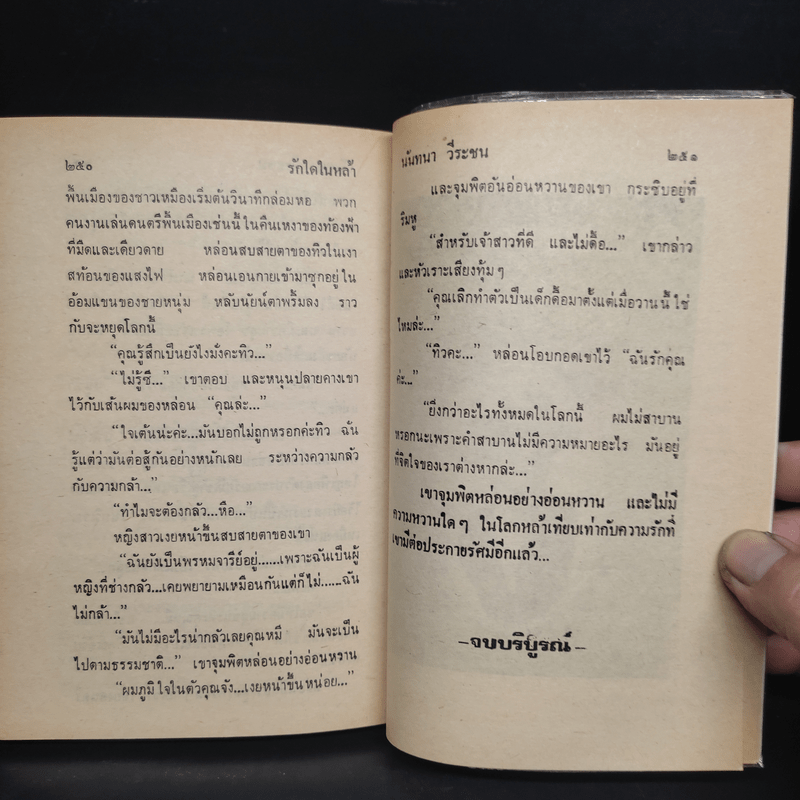 ๒๕๐ รักใดในหล้า
พื้นเมืองของชาวเหมืองเริ่มต้นวินาทีกล่อมหอ พวก
คนงานเล่นดนตรีพื้นเมืองเช่นนี้ ในคืนเหงาของท้องฟ้า
ที่มืดและเดียวดาย หล่อนสบสายตาของทิวในเงา
สท้อนของแสงไฟ หล่อนเอนกายเข้ามาซุกอยู่ใน
อ้อมแขนของชายหนุ่ม หลับนัยน์ตาพริ้มลง ราว
กับจะหยุดโลกนี้
“คุณรู้สึกเป็นยังไงมั่งคะทิว...”
“ไม่รู้ซี...” เขาตอบ และหนุนปลายคางเขา
ไว้กับเส้นผมของหล่อน “คุณล่ะ...”
“ใจเต้นน่ะค่ะ...มันบอกไม่ถูกหรอกค่ะทิว ฉัน
รู้แต่ว่ามันต่อสู้กันอย่างหนักเลย ระหว่างความกลัว
กับความกล้า...”
“ทำไมจะต้องกลัว...หือ...”
หญิงสาวเงยหน้าขึ้นสบสายตาของเขา
“ฉันยังเป็นพรหมจารีย์อยู่......เพราะฉันเป็นผู้
หญิงที่ช่างกลัว...เคยพยายามเหมือนกันแต่ก็ไม่.....ฉัน
ไม่กล้า...”
“มันไม่มีอะไรน่ากลัวเลยคุณหมี มันจะเป็น
ไปตามธรรมชาติ...” เขาจุมพิตหล่อนอย่างอ่อนหวาน
“ผมภูมิใจในตัวคุณจัง...เงยหน้าขึ้นหน่อย...”
นันทนา วีระชน ๒๕๑
และจุมพิตอันอ่อนหวานของเขา กระซิบอยู่ที่
ริมหู
“สำหรับเจ้าสาวที่ดี และไม่ดื้อ...” เขากล่าว
และหัวเราะเสียงทุ้มๆ
“คุณเลิกทำตัวเป็นเด็กดื้อมาตั้งแต่เมื่อวานนี้ ใช่
ไหมล่ะ...”
“ทิวคะ...” หล่อนโอบกอดเขาไว้ “ฉันรักคุณ
ค่ะ...”
“ยิ่งกว่าอะไรทั้งหมดในโลกนี้ ผมไม่สาบาน
หรอกนะเพราะคำสาบานไม่มีความหมายอะไร มันอยู่
ที่จิตใจของเราต่างหากล่ะ...”
เขาจุมพิตหล่อนอย่างอ่อนหวาน และไม่มี
ความหวานใดๆ ในโลกหล้าเทียบเท่ากับความรักที่
เขามีต่อประกายรัศมีอีกแล้ว...
–จบบริบูรณ์–